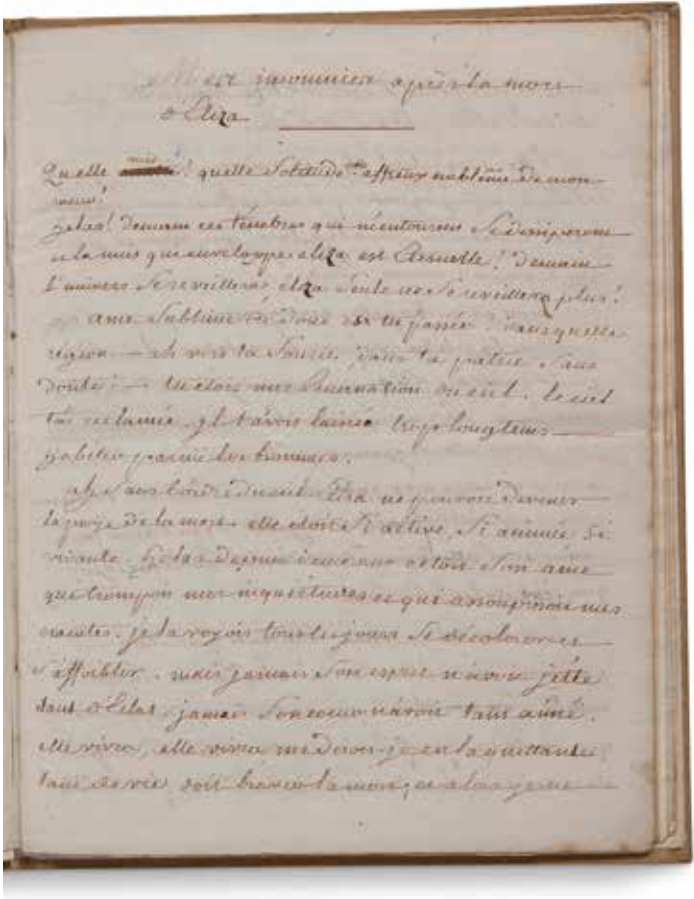 Mes insomnies après la mort
d'Eliza
Quelle nuit! quelle solitude affreux tableau de mon
coeur!
helas! Demain ces ténebres qui m'entourent se dissiperont
et la nuit qui enveloppe eliza est éternelle! Demain
l'univers se reveillera, eliza seule ne se reveillera plus!
ame sublime où donc es tu passée? Dans quelle
region — ah vers ta source, dans ta patrie sans
doute! — tu etois une émanation du ciel. le ciel
t'a reclamée. il t'avoit laissée trop longtems
habiter parmi les hommes.
ah sans l'ordre du ciel Eliza ne pouvoit devenir
la proye de la mort. elle etoit si active, si animée, si
vivante. helas depuis deux ans c'etoit son ame
que trompoit mes inquiétudes et qui assoupissoit mes
craintes. je la voyois tous les jours se décolorer et
s'affoiblir. mais jamais son esprit n'avoit jetté
tant d'éclat. jamais son coeur n'avoit tant aimé.
elle vivra, elle vivra me disois-je en la quittant
tant de vie doit braver la mort, et alors je ne